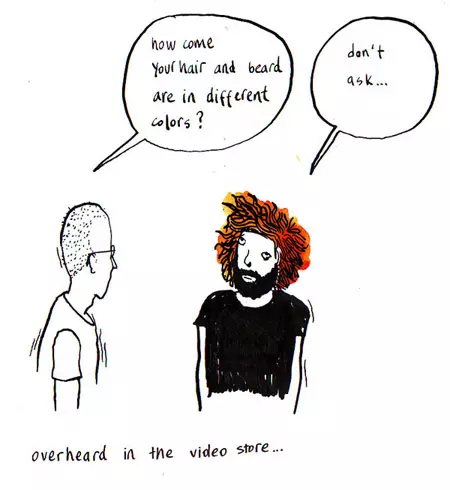 how come
your hair and beard
are in different
colors?
don't
ask...
overheard in the video store...